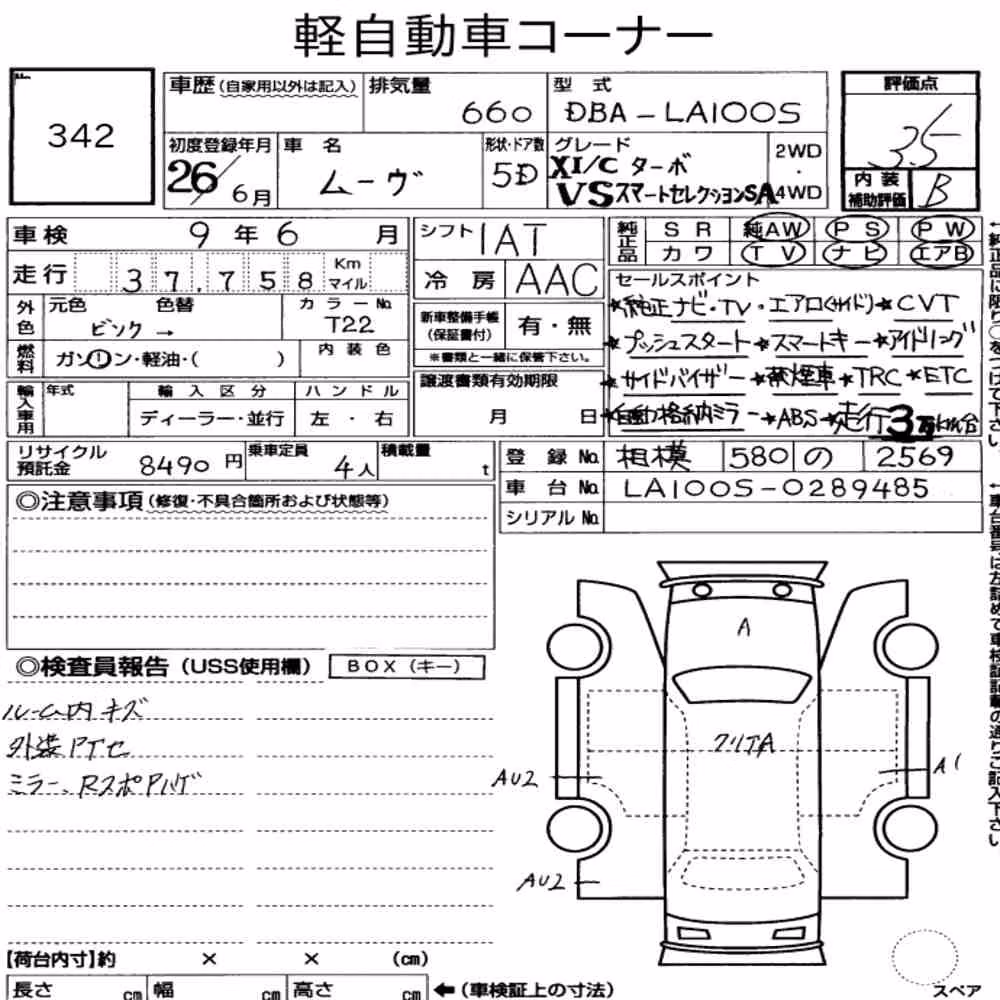 軽自動車コーナー
342
車歴(自家用以外は記入) 排気量 660 型式 DBA-LA100S 評価点 3.5
初度登録年月 26/6月 車名 ムーヴ 形状・ドア数 5D グレード XI/C ターボ VSスマートセレクションSA 2WD・4WD
内装補助評価 B
車検 9年6月 シフト IAT 純正品 SR 純AW PS PW
カワ TV ナビ エアB
走行 37,758 Km マイル 冷房 AAC
外色 元色 色替 ピンク → カラーNo. T22
新車整備手帳(保証書付) 有・無
※書類と一緒に保管下さい。
燃料 ガソリン・軽油・( ) 内装色
輸入車用 年式 輸入区分 ディーラー・並行 ハンドル 左・右
譲渡書類有効期限 月 日
セールスポイント
★純正ナビ・TV・エアロ(サイド)★CVT
★プッシュスタート★スマートキー★アイドリング
★サイドバイザー★禁煙車★TRC★ETC
★自動格納ミラー★ABS★走行3万km台
リサイクル預託金 8490円 乗車定員 4人 積載量 t
登録No. 相模 580 の 2569
車台No. LA100S-0289485
シリアルNo.
◎注意事項(修復・不具合箇所および状態等)
◎検査員報告(USS使用欄) BOX(キー)
ルーム内キズ
外装PTセ
ミラー、RスポPハゲ
A
クリアA
AU2
A1
AU2
スペア
【荷台内寸】約 × × (cm)
長さ cm 幅 cm 高さ cm ←(車検証上の寸法)
←純正品に限り○をつけて下さい
←車台番号は左詰めで車検証記載の通りご記入下さい